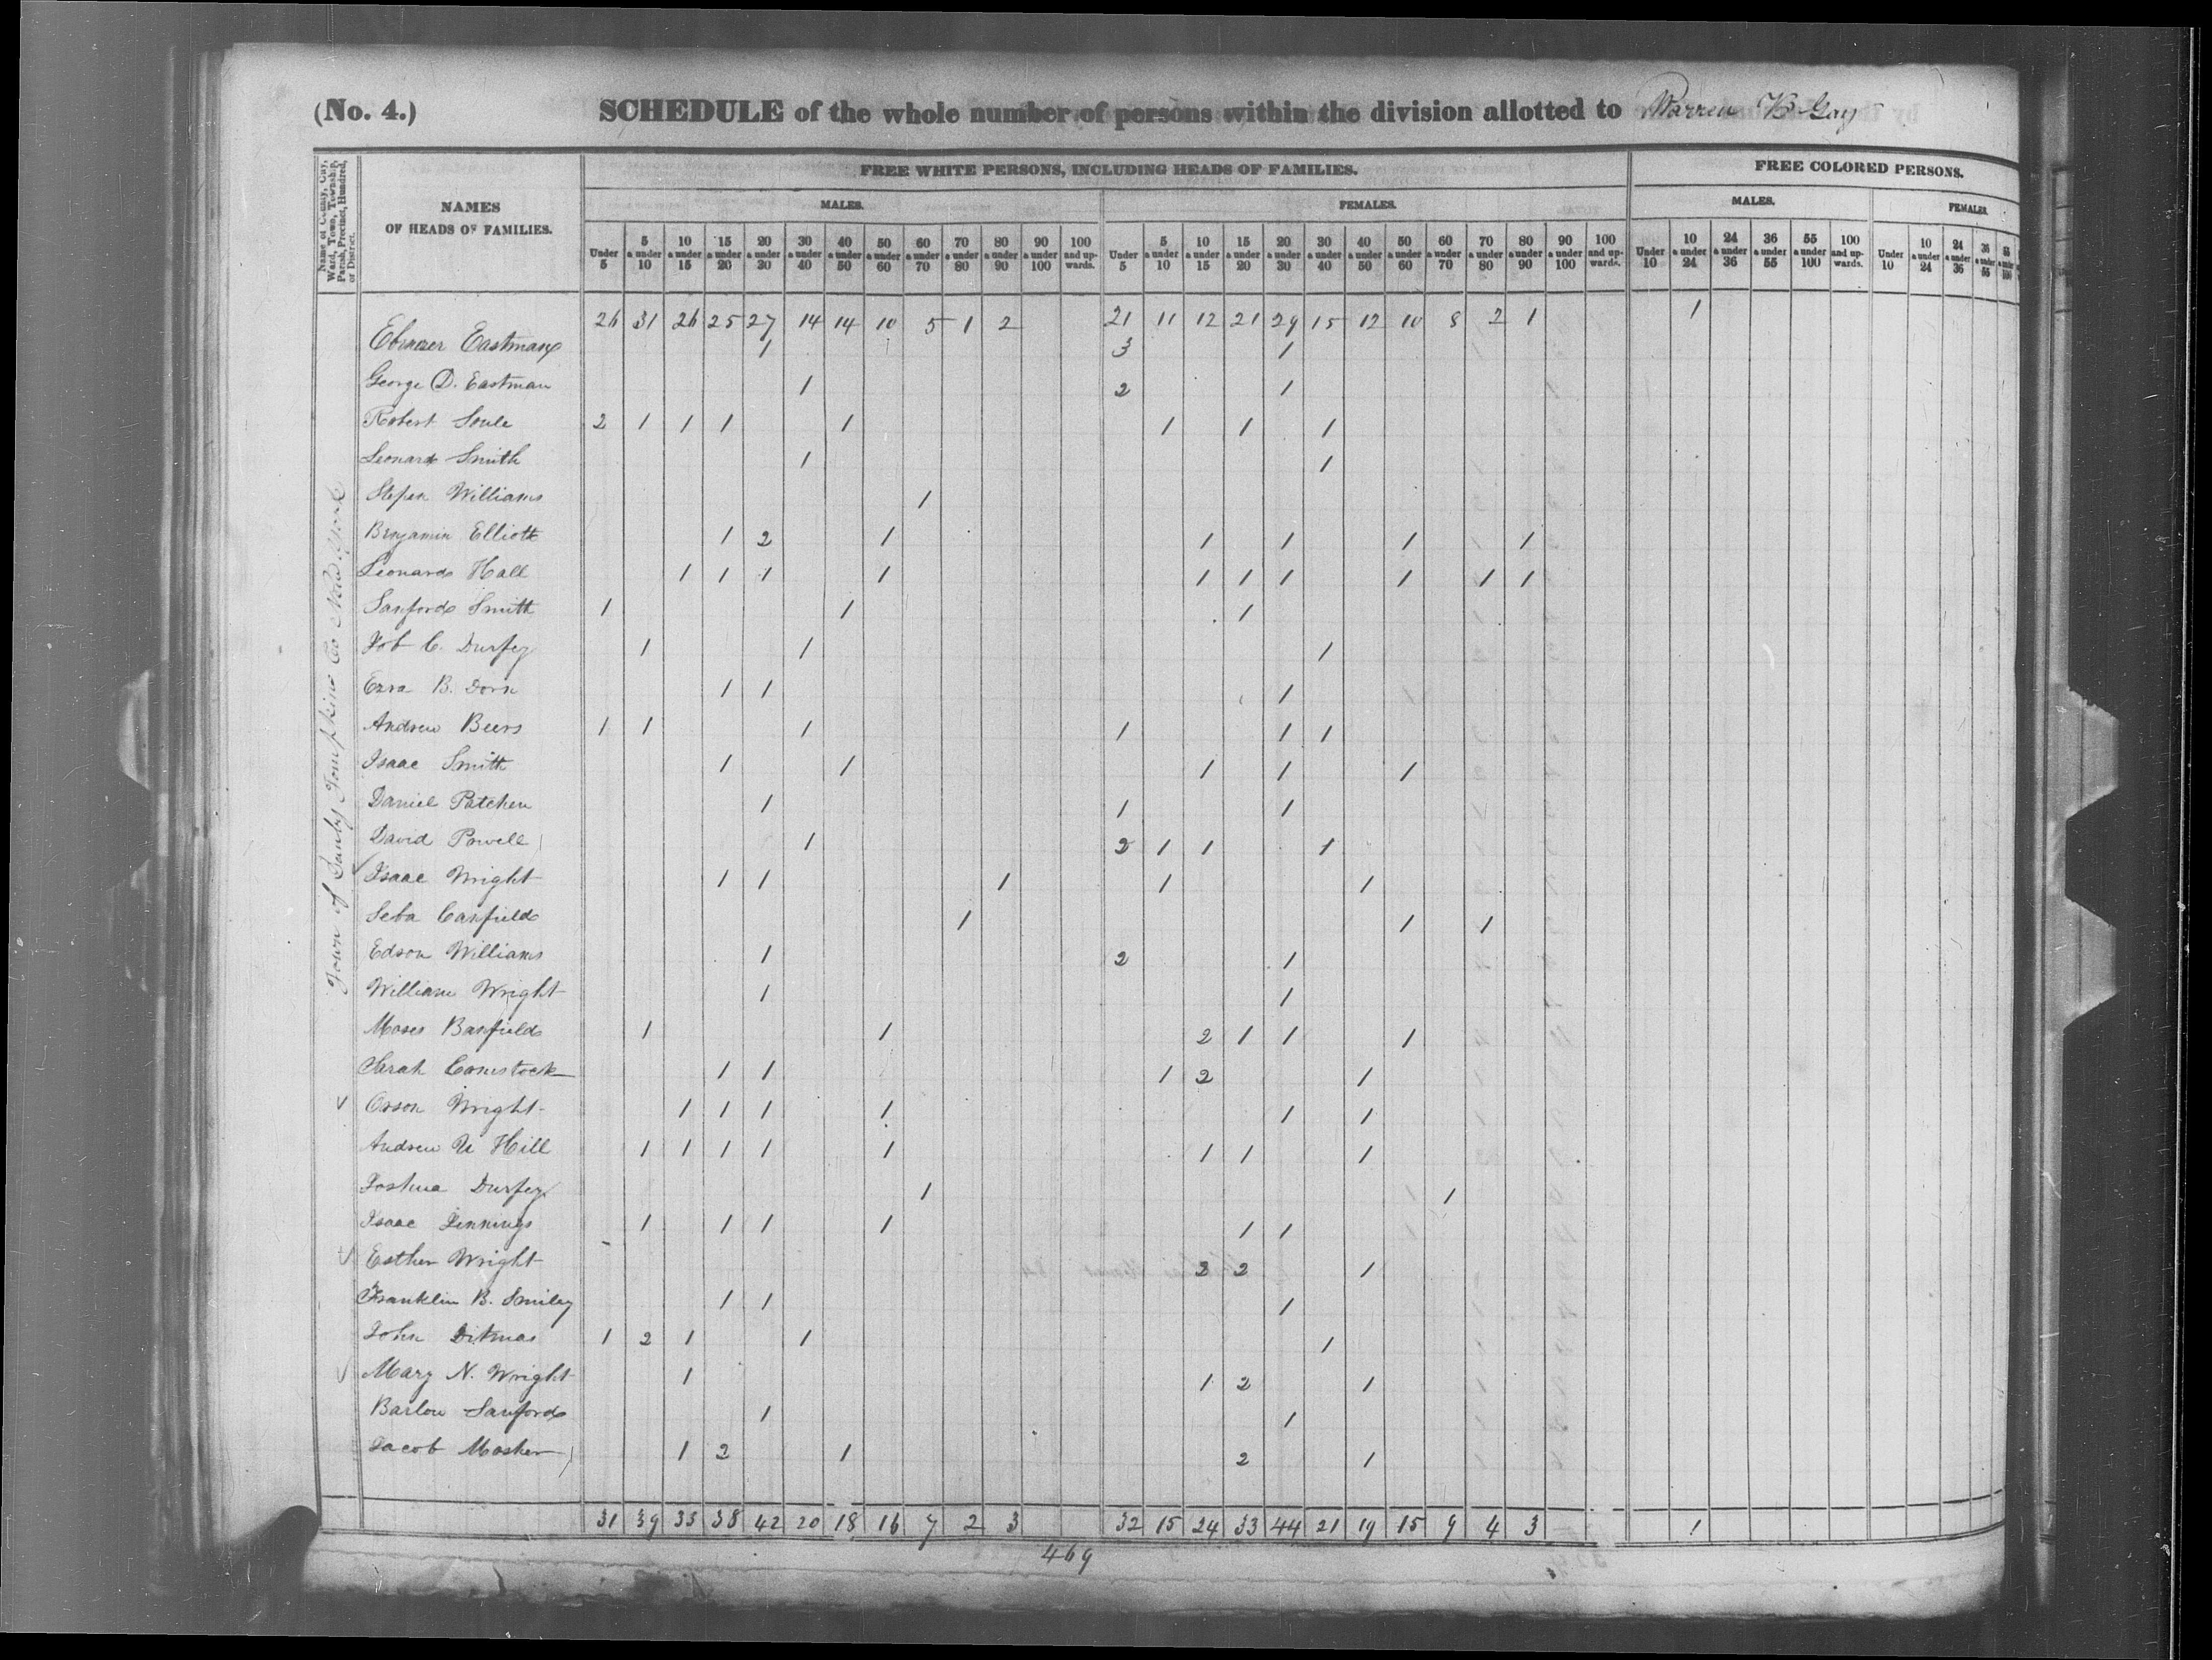 (No. 4.) SCHEDULE of the whole number of persons within the division allotted to Warren K Gay
Name of County, City, Ward, Town, Township, Parish, Precinct, Hundred, or District.
NAMES OF HEADS OF FAMILIES.
FREE WHITE PERSONS, INCLUDING HEADS OF FAMILIES.
FREE COLORED PERSONS.
MALES. FEMALES. MALES. FEMALES.
Under 5 | 5 & under 10 | 10 & under 15 | 15 & under 20 | 20 & under 30 | 30 & under 40 | 40 & under 50 | 50 & under 60 | 60 & under 70 | 70 & under 80 | 80 & under 90 | 90 & under 100 | 100 and upwards. | Under 5 | 5 & under 10 | 10 & under 15 | 15 & under 20 | 20 & under 30 | 30 & under 40 | 40 & under 50 | 50 & under 60 | 60 & under 70 | 70 & under 80 | 80 & under 90 | 90 & under 100 | 100 and upwards. | Under 10 | 10 & under 24 | 24 & under 36 | 36 & under 55 | 55 & under 100 | 100 and upwards. | Under 10 | 10 & under 24 | 24 & under 36 | 36 & under 55 | 55 & under 100
Town of Danby Tompkins Co New York
26 31 26 25 27 14 14 10 5 1 2 21 11 12 21 29 15 12 10 8 2 1 1
Ebenezer Eastman 1 3 1
George D. Eastman 1 2 1
Robert Soule 2 1 1 1 1 1 1 1
Leonard Smith 1 1
Stepen Williams 1
Benjamin Elliott 1 2 1 1 1 1 1
Leonard Hall 1 1 1 1 1 1 1 1 1 1
Sanford Smith 1 1 1
Job C. Durfey 1 1 1
Ezra B. Dorn 1 1 1
Andrew Beers 1 1 1 1 1 1
Isaac Smith 1 1 1 1 1
Daniel Patchen 1 1 1
David Powell 1 2 1 1 1
Isaac Wright 1 1 1 1 1
Seba Canfield 1 1 1
Edson Williams 1 2 1
William Wright 1 1
Moses Banfield 1 1 2 1 1 1
Sarah Comstock 1 1 1 2 1
Orson Wright 1 1 1 1 1 1
Andrew U Hill 1 1 1 1 1 1 1 1
Joshua Durfey 1 1
Isaac Jennings 1 1 1 1 1 1
Esther Wright 2 2 1
Franklin B. Smiley 1 1 1
John Ditmas 1 2 1 1 1
Mary N. Wright 1 1 2 1
Barlow Sanford 1 1
Jacob Mosher 1 2 1 2 1
31 39 33 38 42 20 18 16 7 2 3 32 15 24 33 44 21 19 15 9 4 3 1
469